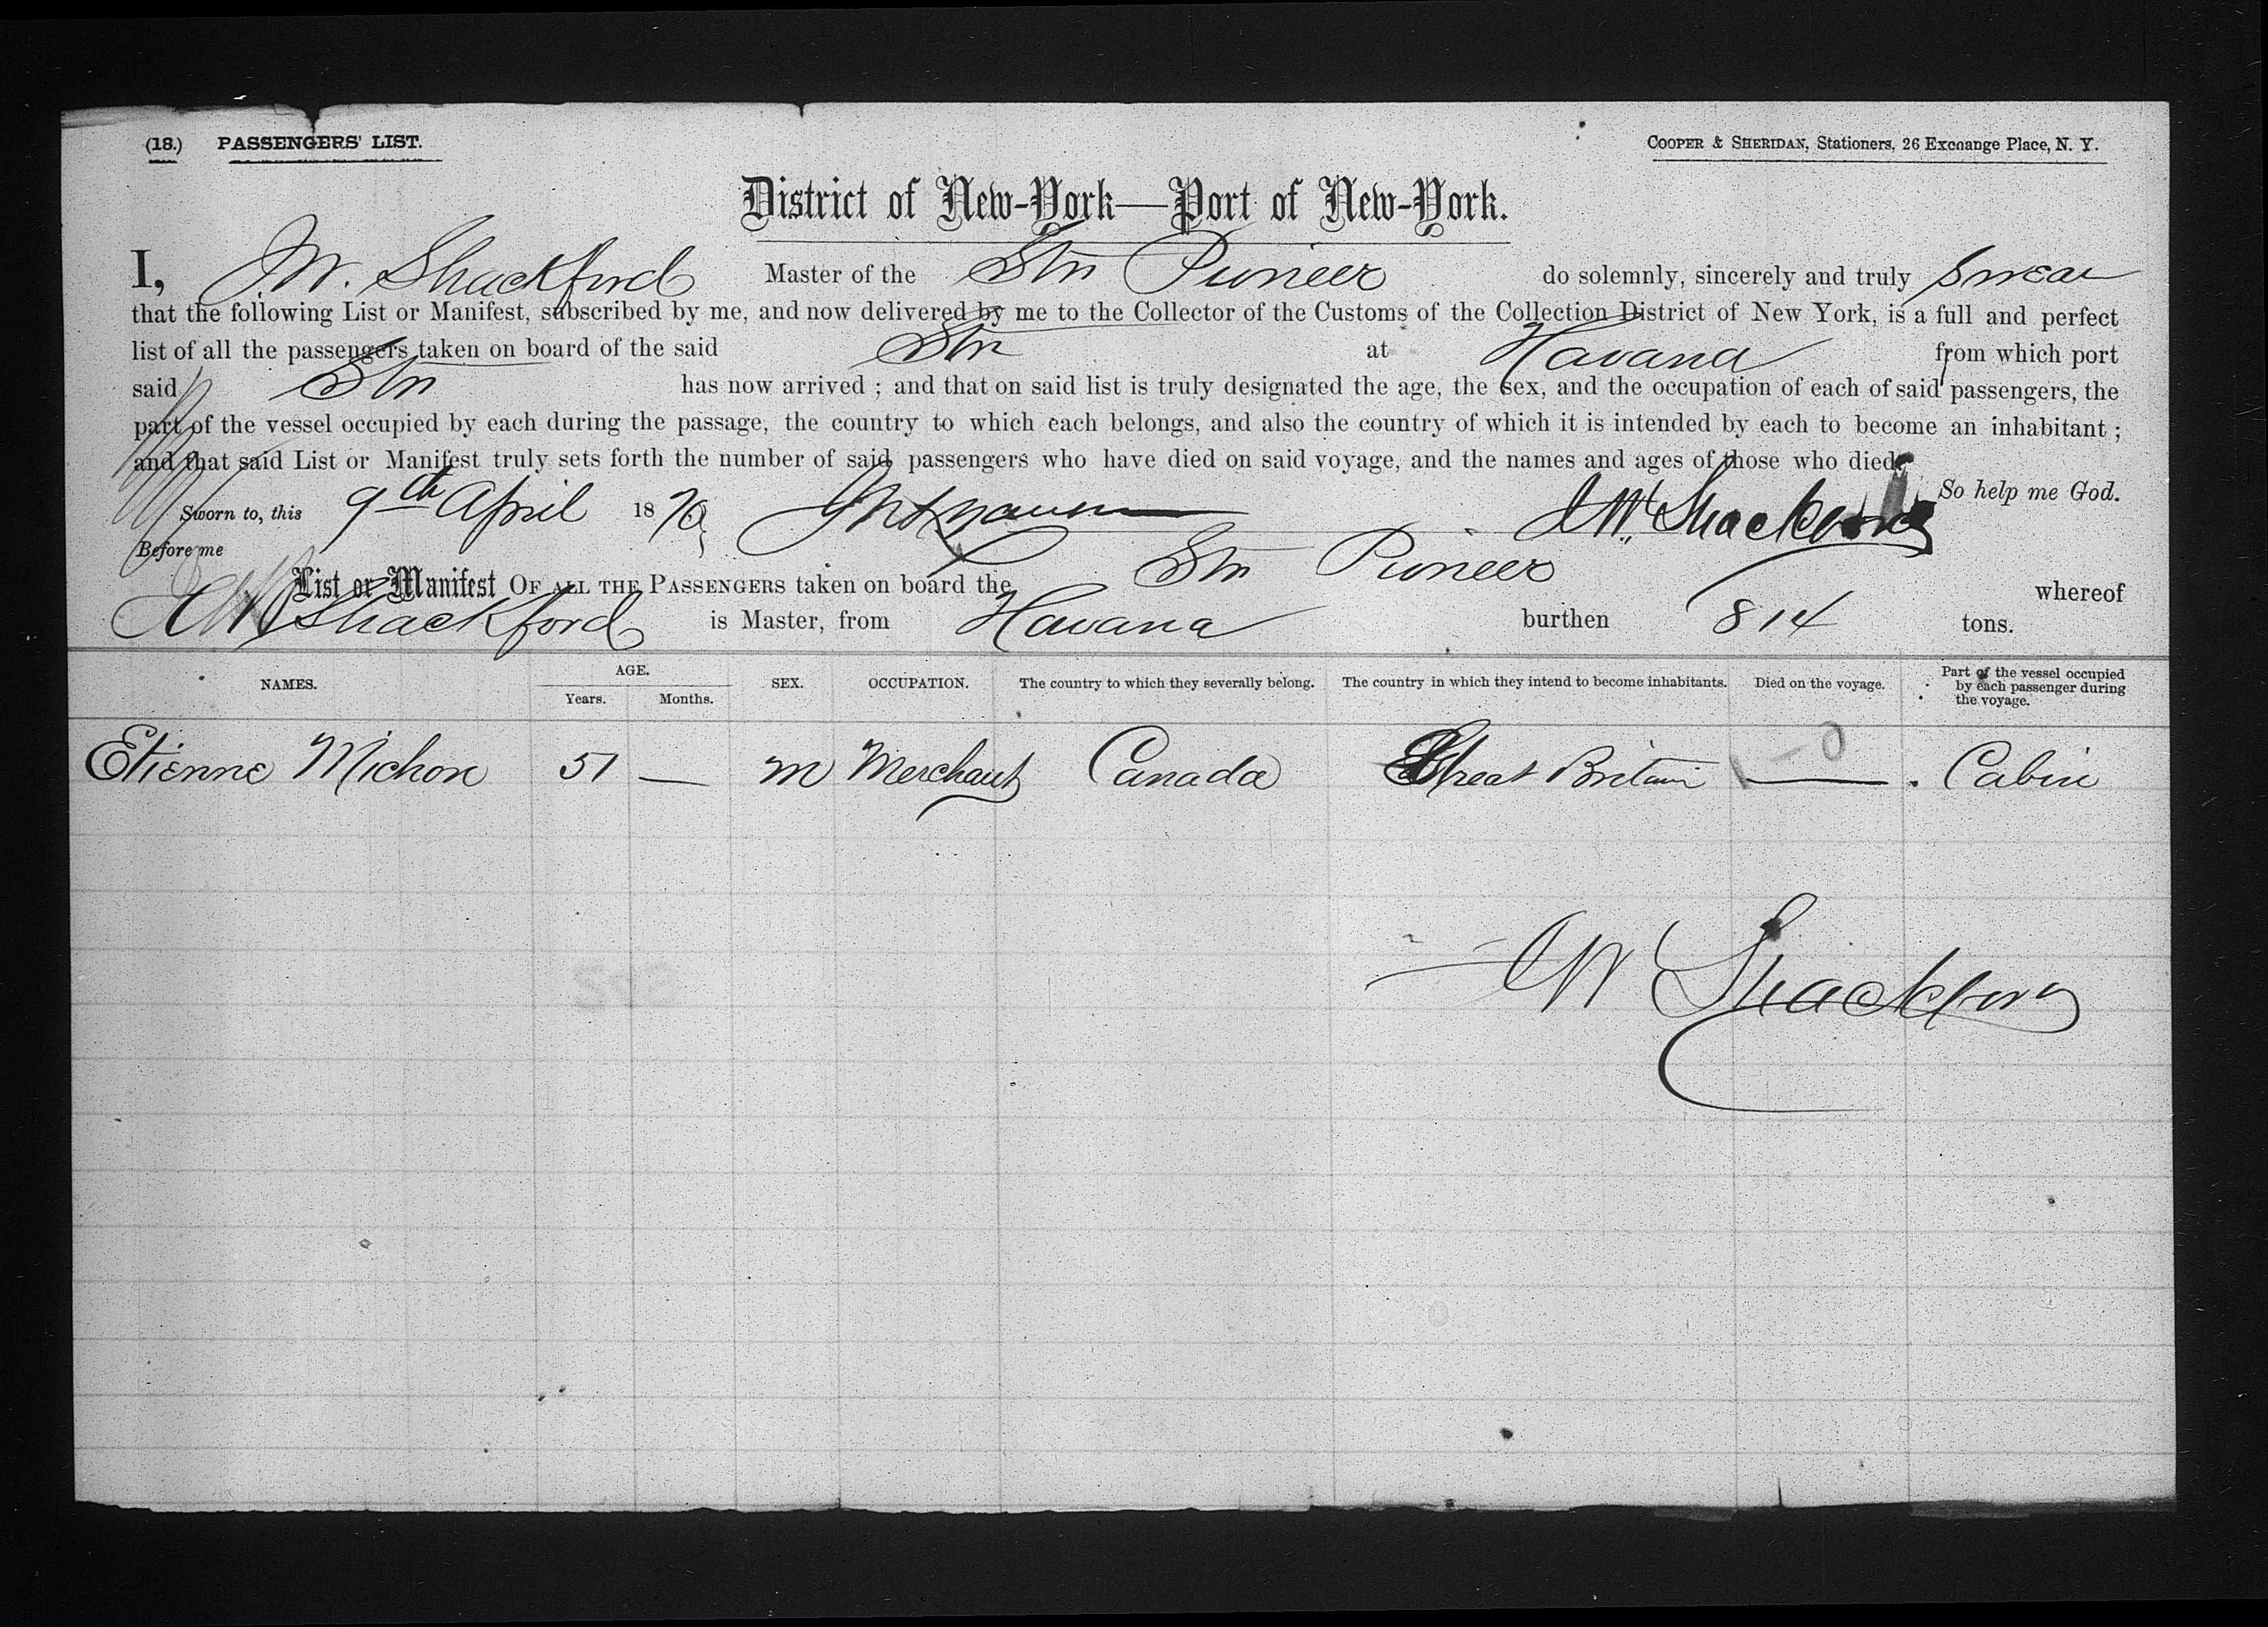 (18.) PASSENGERS' LIST. COOPER & SHERIDAN, Stationers, 26 Exchange Place, N. Y.
District of New-York—Port of New-York.
I, J.W. Shackford Master of the Str Pioneer do solemnly, sincerely and truly swear
that the following List or Manifest, subscribed by me, and now delivered by me to the Collector of the Customs of the Collection District of New York, is a full and perfect
list of all the passengers taken on board of the said Str at Havana from which port
said Str has now arrived ; and that on said list is truly designated the age, the sex, and the occupation of each of said passengers, the
part of the vessel occupied by each during the passage, the country to which each belongs, and also the country of which it is intended by each to become an inhabitant ;
and that said List or Manifest truly sets forth the number of said passengers who have died on said voyage, and the names and ages of those who died.
So help me God.
Sworn to, this 9th April 1870 JW Shackford
Before me
List or Manifest OF ALL THE PASSENGERS taken on board the Str Pioneer whereof
JW Shackford is Master, from Havana burthen 814 tons.
NAMES. AGE. Years. Months. SEX. OCCUPATION. The country to which they severally belong. The country in which they intend to become inhabitants. Died on the voyage. Part of the vessel occupied by each passenger during the voyage.
Etienne Michon 51 — m Merchant Canada Great Britain — Cabin
JW Shackford